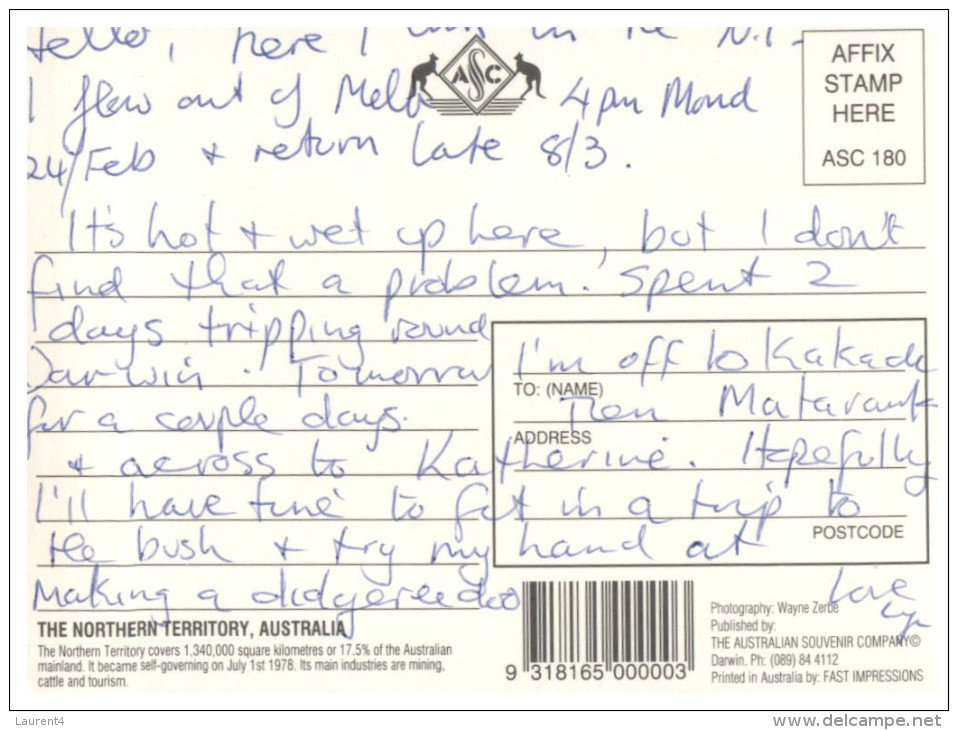 Hello, here I am in the N.T-
I flew out of Melb 4pm Mond
24/Feb + return late 8/3.
It's hot + wet up here, but I don't
find that a problem. Spent 2
days tripping round
Darwin. Tomorrow I'm off to Kakadu
for a couple days. Then Matarank
+ across to Katherine. Hopefully
I'll have time to fit in a trip to
the bush + try my hand at
Making a didgereedoo
Love
ASC
AFFIX
STAMP
HERE
ASC 180
TO: (NAME)
ADDRESS
POSTCODE
THE NORTHERN TERRITORY, AUSTRALIA
The Northern Territory covers 1,340,000 square kilometres or 17.5% of the Australian
mainland. It became self-governing on July 1st 1978. Its main industries are mining,
cattle and tourism.
9 318165 000003
Photography: Wayne Zerbe
Published by:
THE AUSTRALIAN SOUVENIR COMPANY©
Darwin. Ph: (089) 84 4112
Printed in Australia by: FAST IMPRESSIONS
Laurent4
www.delcampe.net